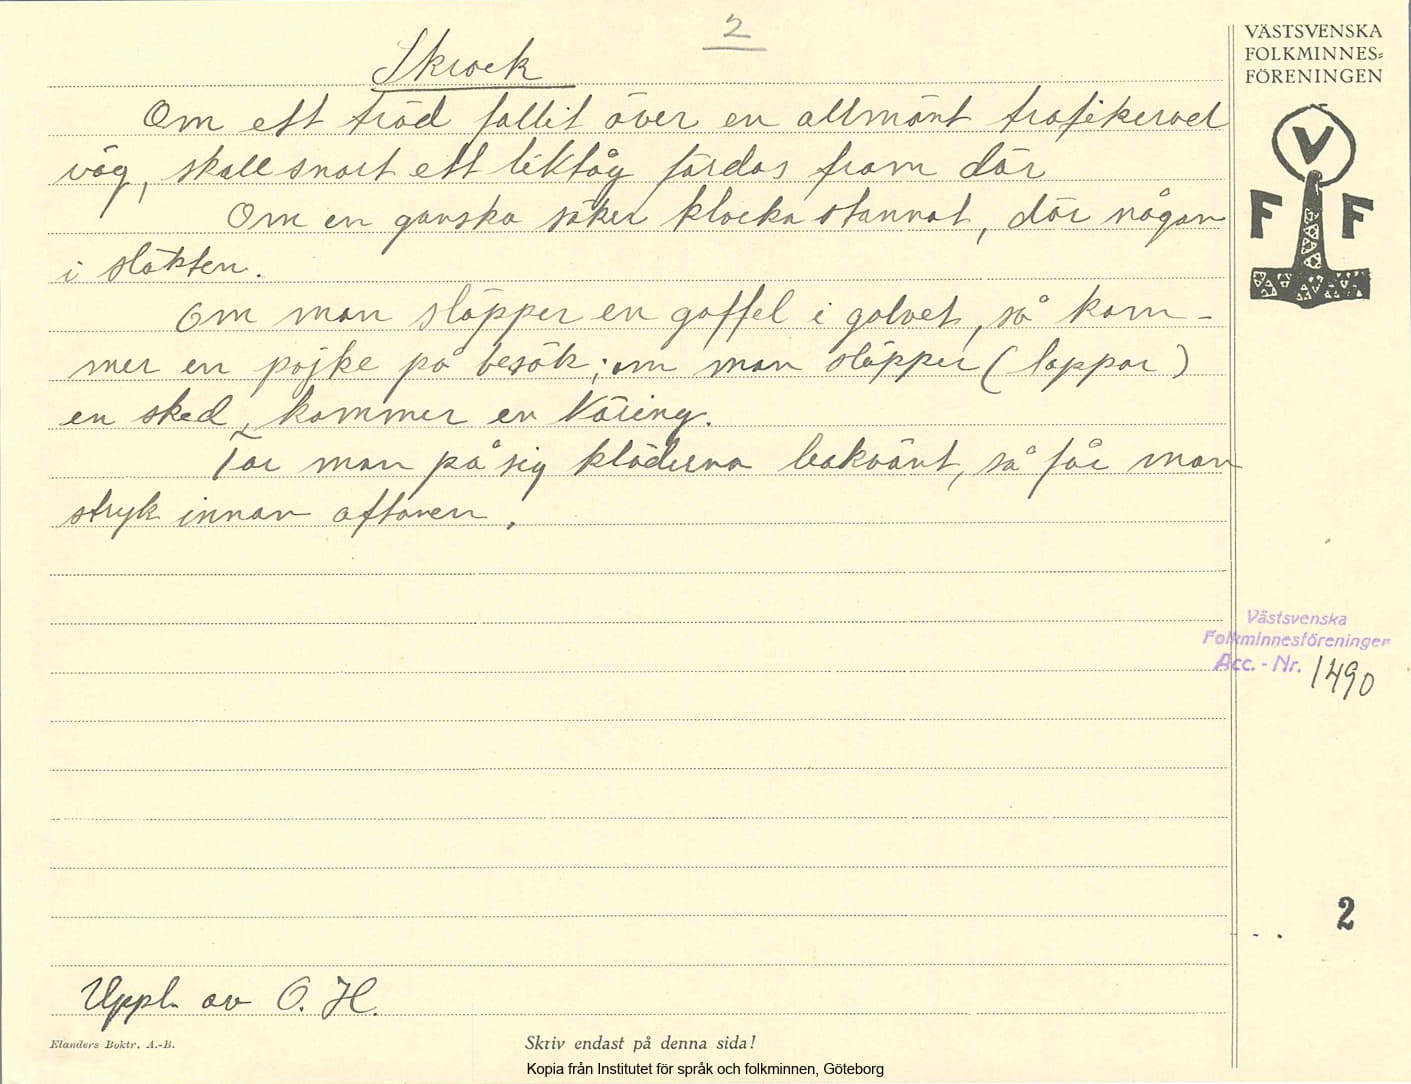 2
Skrock
Om ett träd fallit över en allmänt trafikerad
väg, skall snart ett liktåg färdas fram där
Om en ganska säker klocka stannat, dör någon
i släkten.
Om man släpper en gaffel i golvet, så kom-
mer en pojke på besök; om man släpper (tappar)
en sked, kommer en käring.
Tar man på sig kläderna bakvänt, så får man
stryk innan aftonen.
Uppl. av O. H.
Elanders Boktr. A.-B.
Skriv endast på denna sida!
Kopia från Institutet för språk och folkminnen, Göteborg
VÄSTSVENSKA
FOLKMINNES-
FÖRENINGEN
V
F F
Västsvenska
Folkminnesföreningen
Acc. - Nr. 1490
2